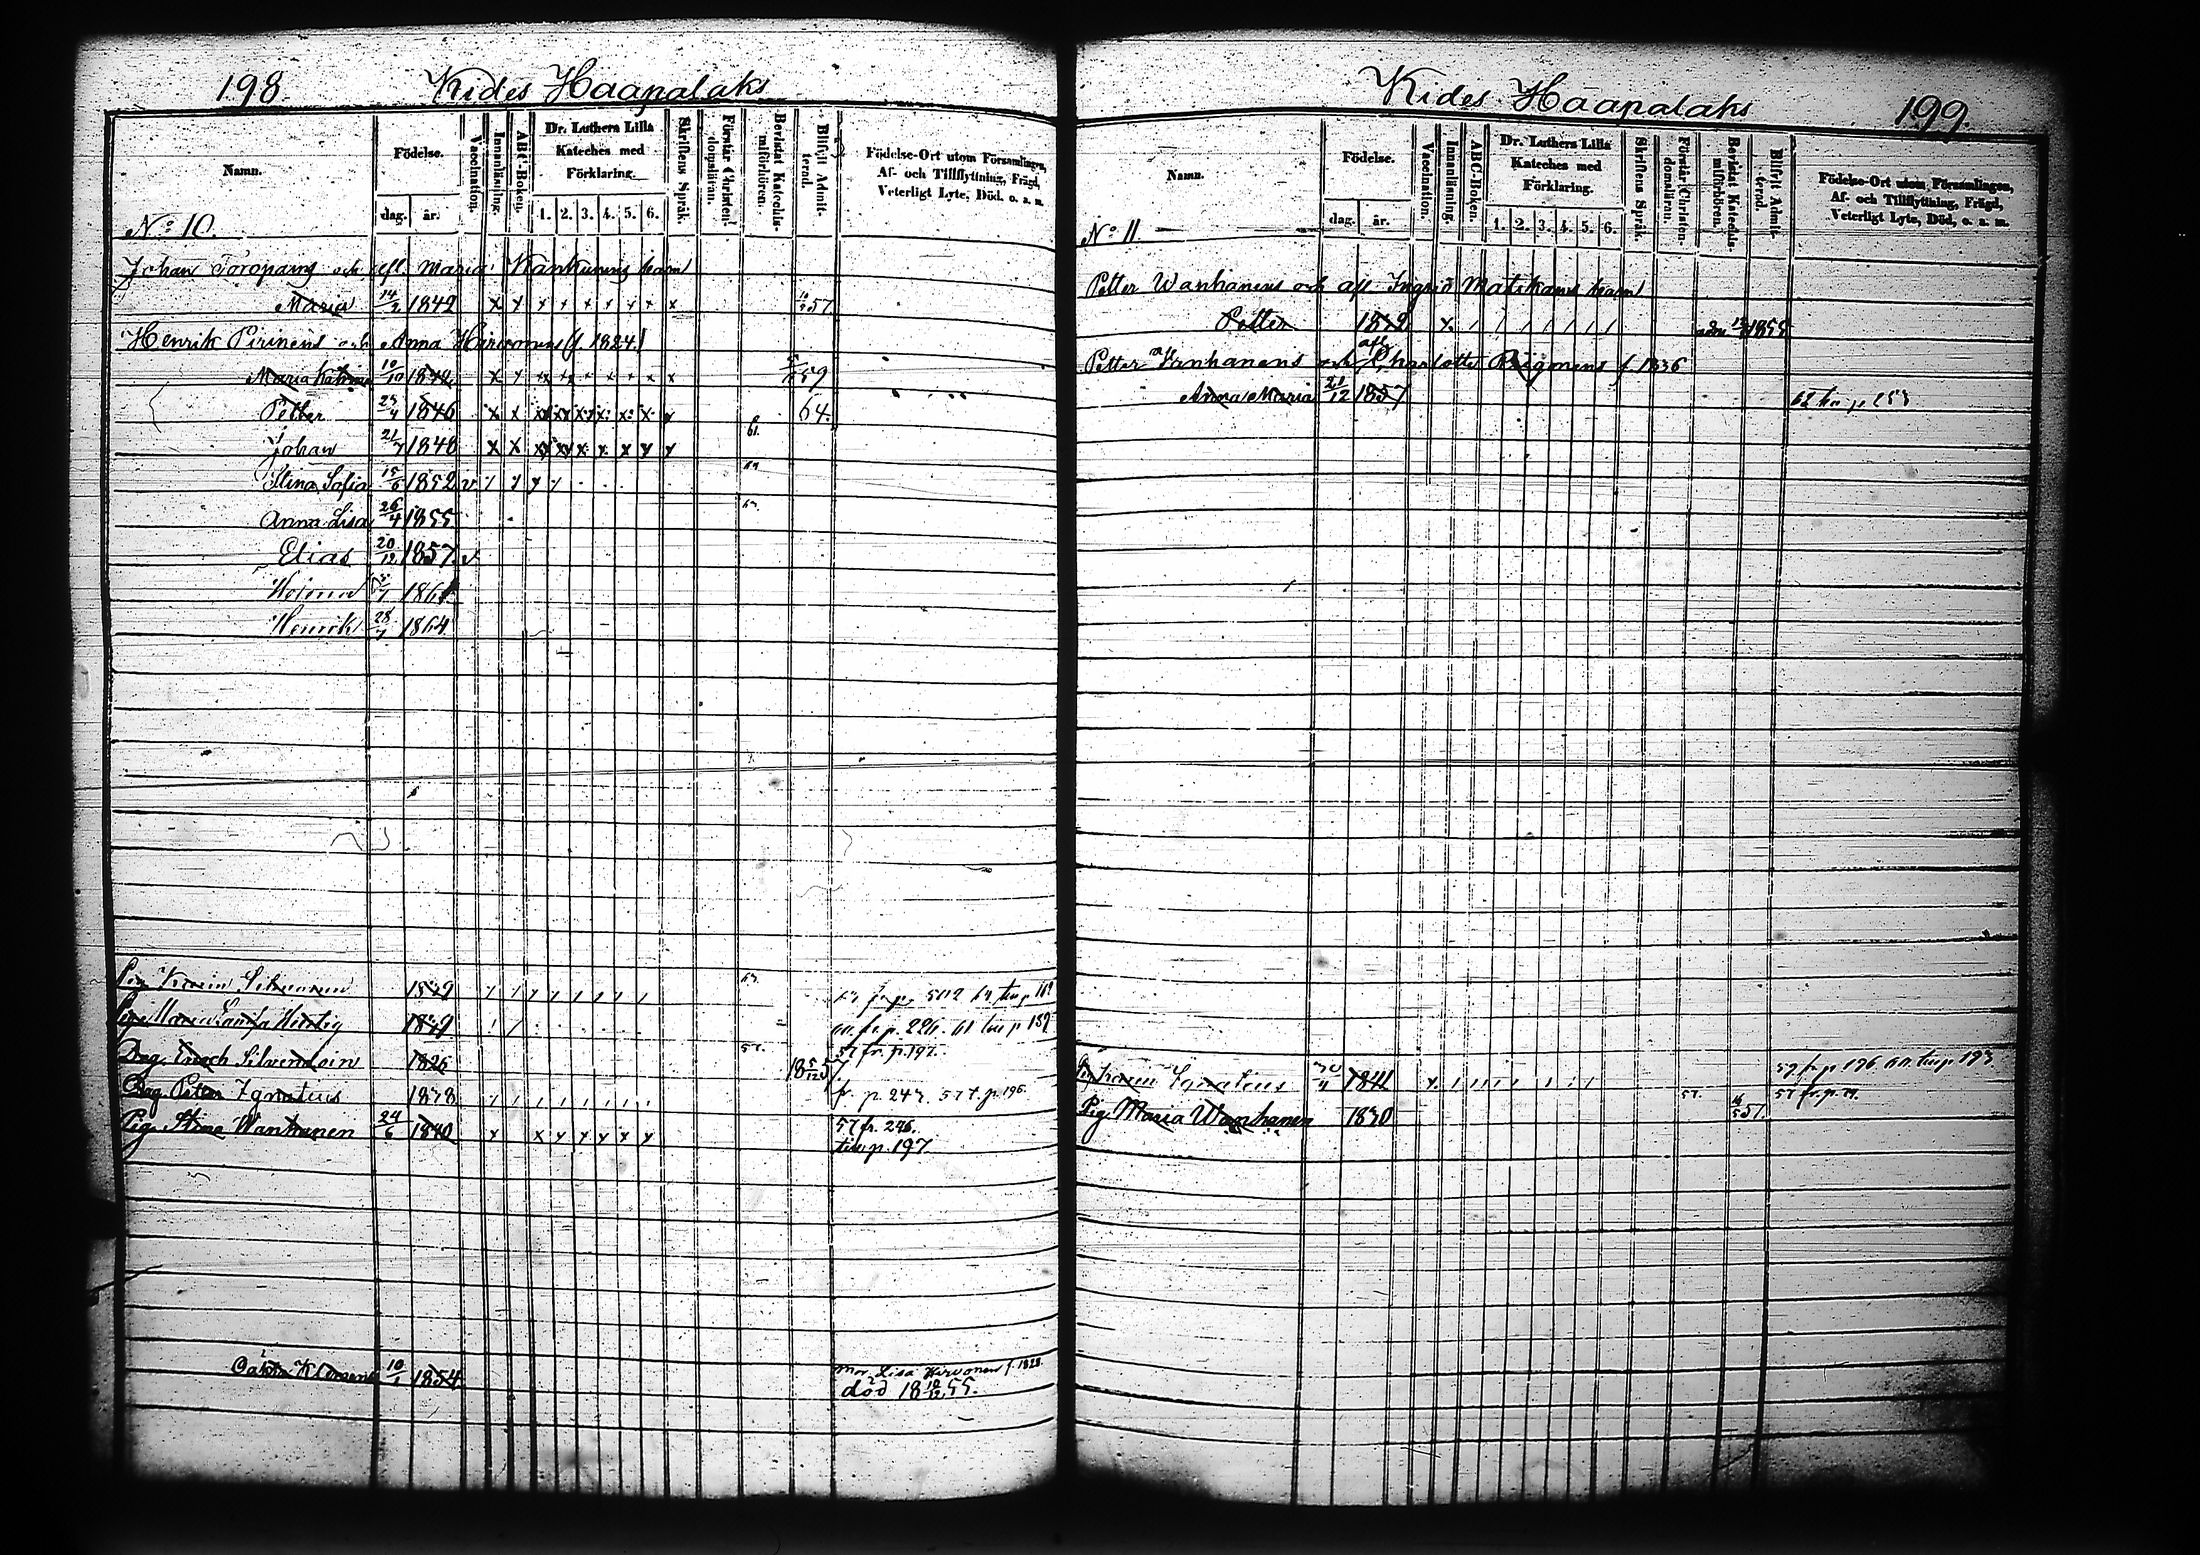 198. Kides Haapalaks
Namn. Födelse. Vaccination. Innanläsning. ABC-Boken. Dr. Luthers Lilla Kateches med Förklaring. Skriftens Språk. Förstår Christendomsläran. Bevistat Katechismiförhören. Blifvit Admitterad. Födelse-Ort utom Församlingen, Af- och Tillflyttning, Frägd, Veterligt Lyte, Död. o. s. v.
dag. år. 1. 2. 3. 4. 5. 6.
No 10.
Johan Toropains och afl. Maria Kankunens barn
Maria 14/2 1842 x x x x x x x x x 57
Henrik Pirinens och Anna Hirvonens (f. 1824)
Maria Katrina 10/10 1842 x x x x x x x x x 59
Petter 23/4 1846 x x x x x x x x x 64.
Johan 21/7 1848 x x x x x x x x x 61.
Stina Sofia 15/6 1852 v
Anna Lisa 26/4 1855
Elias 20/12 1857. v
1861
Henrik 28/7 1864
Pig. Karin 1849
Pig. Maria 1849 fr. p. 226. 61 till p 189
Drg. Enoch Silvendoin 1826 57. 18 5/12 57 57 fr. p. 197.
Drg. Peter Ignatius 1838 fr. p 247. 57 t. p. 196.
Pig. Stina Wanhanen 24/6 1840 x x x x x x x 57 fr. 246.
till p. 197.
10/1 1854 mor Lisa Hirvonen f. 1828.
död 18 10/12 55.
Kides Haapalaks 199.
Namn. Födelse. Vaccination. Innanläsning. ABC-Boken. Dr. Luthers Lilla Kateches med Förklaring. Skriftens Språk. Förstår Christendomsläran. Bevistat Katechismiförhören. Blifvit Admitterad. Födelse-Ort utom Församlingen, Af- och Tillflyttning, Frägd, Veterligt Lyte, Död, o. s. v.
dag. år. 1. 2. 3. 4. 5. 6.
No 11.
Petter Wanhanens och afl. Ingrid Matikains barn
Petter 1842 x. adm 1855
Petter Wanhanens och afl. Charlotta f 1836
Anna Maria 21/12 1857 62 till p 253
Pig. Karin Ignatius 1841 59 fr p 196 60 till p 193.
Pig. Maria Wanhanen 1830 57. 57.